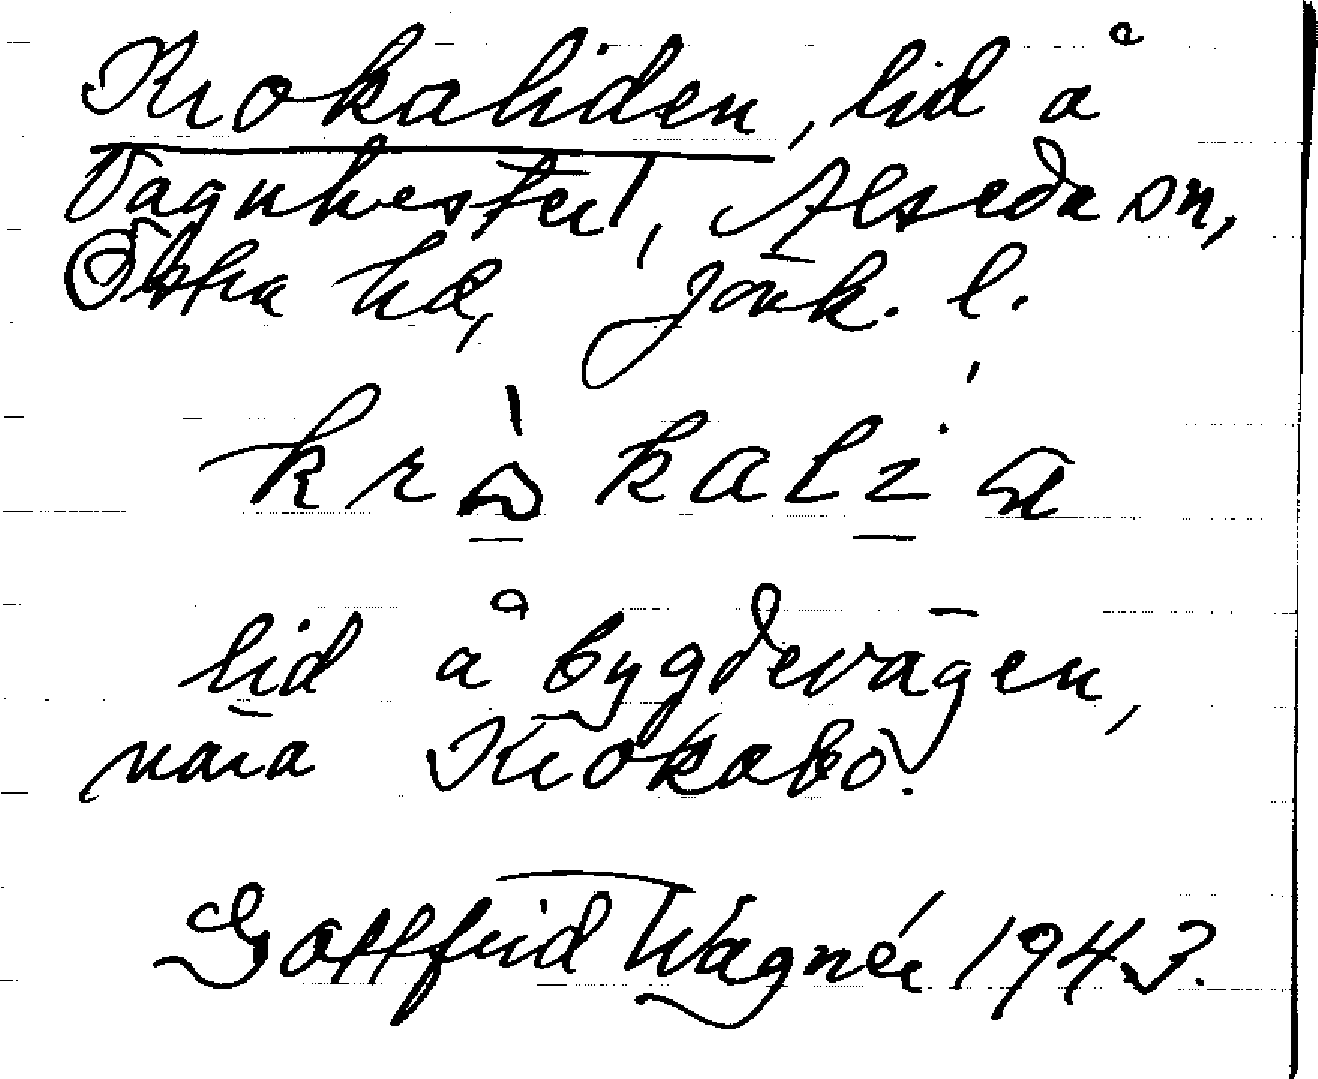 Krokaliden, lid å
Vagnhester, Alseda sn,
Östra hd, Jönk. l.
lid å bygdevägen,
nära Krokabo.
Gottfrid Wagnér 1943.